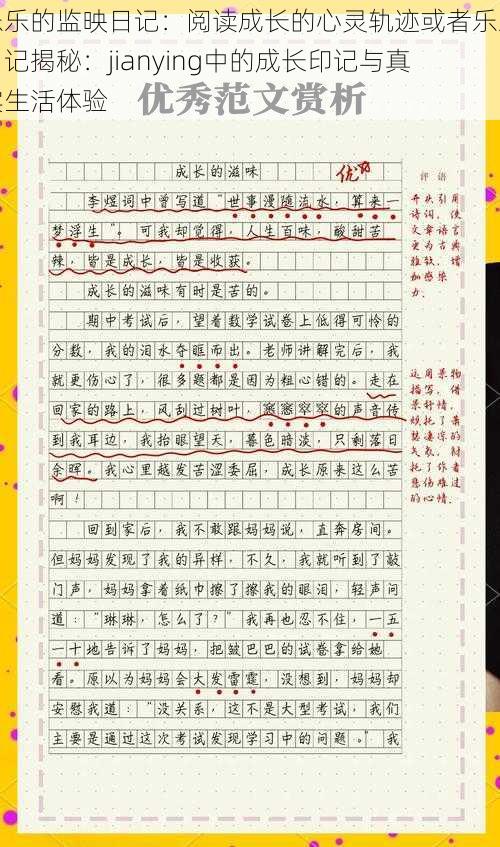 乐乐的监映日记：阅读成长的心灵轨迹或者乐
记揭秘：jianying中的成长印记与真
生活体验
优秀范文赏析
成长的滋味
优
评语
李煜词中曾写道“世事漫随流水，算来一
梦浮生”。可我却觉得，人生百味，酸甜苦
辣，皆是成长，皆是收获。
成长的滋味有时是苦的。
期中考试后，望着数学试卷上低得可怜的
分数，我的泪水夺眶而出。老师讲解完后，我
就更伤心了，很多题都是因为粗心错的。走在
回家的路上，风刮过树叶，窸窸窣窣的声音传
到我耳边，我抬眼望天，暮色暗淡，只剩落日
余晖。我心里越发苦涩委屈，成长原来这么苦
啊！
回到家后，我不敢跟妈妈说，直奔房间。
但妈妈发现了我的异样，不久，我就听到了敲
门声，妈妈拿着纸巾擦了擦我的眼泪，轻声问
道：“琳琳，怎么了？”我再也忍不住，一五
一十地告诉了妈妈，把皱巴巴的试卷拿给她
看。原以为妈妈会大发雷霆，没想到，妈妈却
安慰我道：“没关系，这不是大型考试，我们
主要是通过这次考试发现学习中的问题。”我
开头引用
诗词，使
文章语言
更为古典
雅致，增
加感染
力。
运用景物
描写，借
景抒情，
烘托了萧
瑟凄凉的
气氛，衬
托了作者
悲伤难过
的心情。